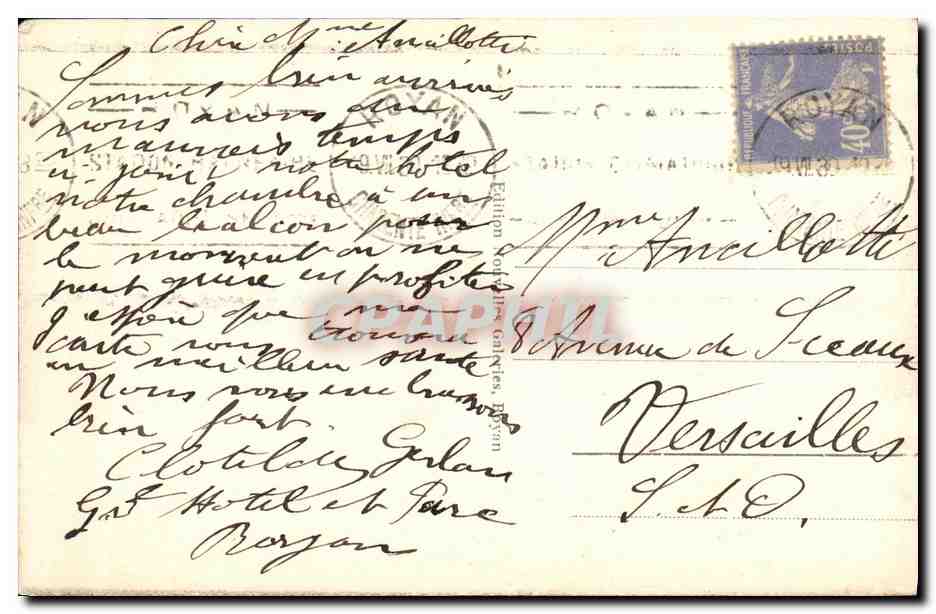 Chère Mme Ancillotti
Sommes bien arrivés
nous avons un
mauvais temps
notre hôtel
notre chambre à un
beau balcon pour
le moment on ne
peut guère en profiter
J'espère que ma
carte vous trouvera
en meilleur santé
Nous vous embrassons
bien fort
Clotilde
Gd Hotel et Parc
Royan
Edition Nouvelles Galeries, Royan
Mme Ancillotti
8 Avenue de Sceaux
Versailles
S. et O.
ROYAN
ROYAN
POSTES
REPUBLIQUE FRANÇAISE
40c
CPAPHIL